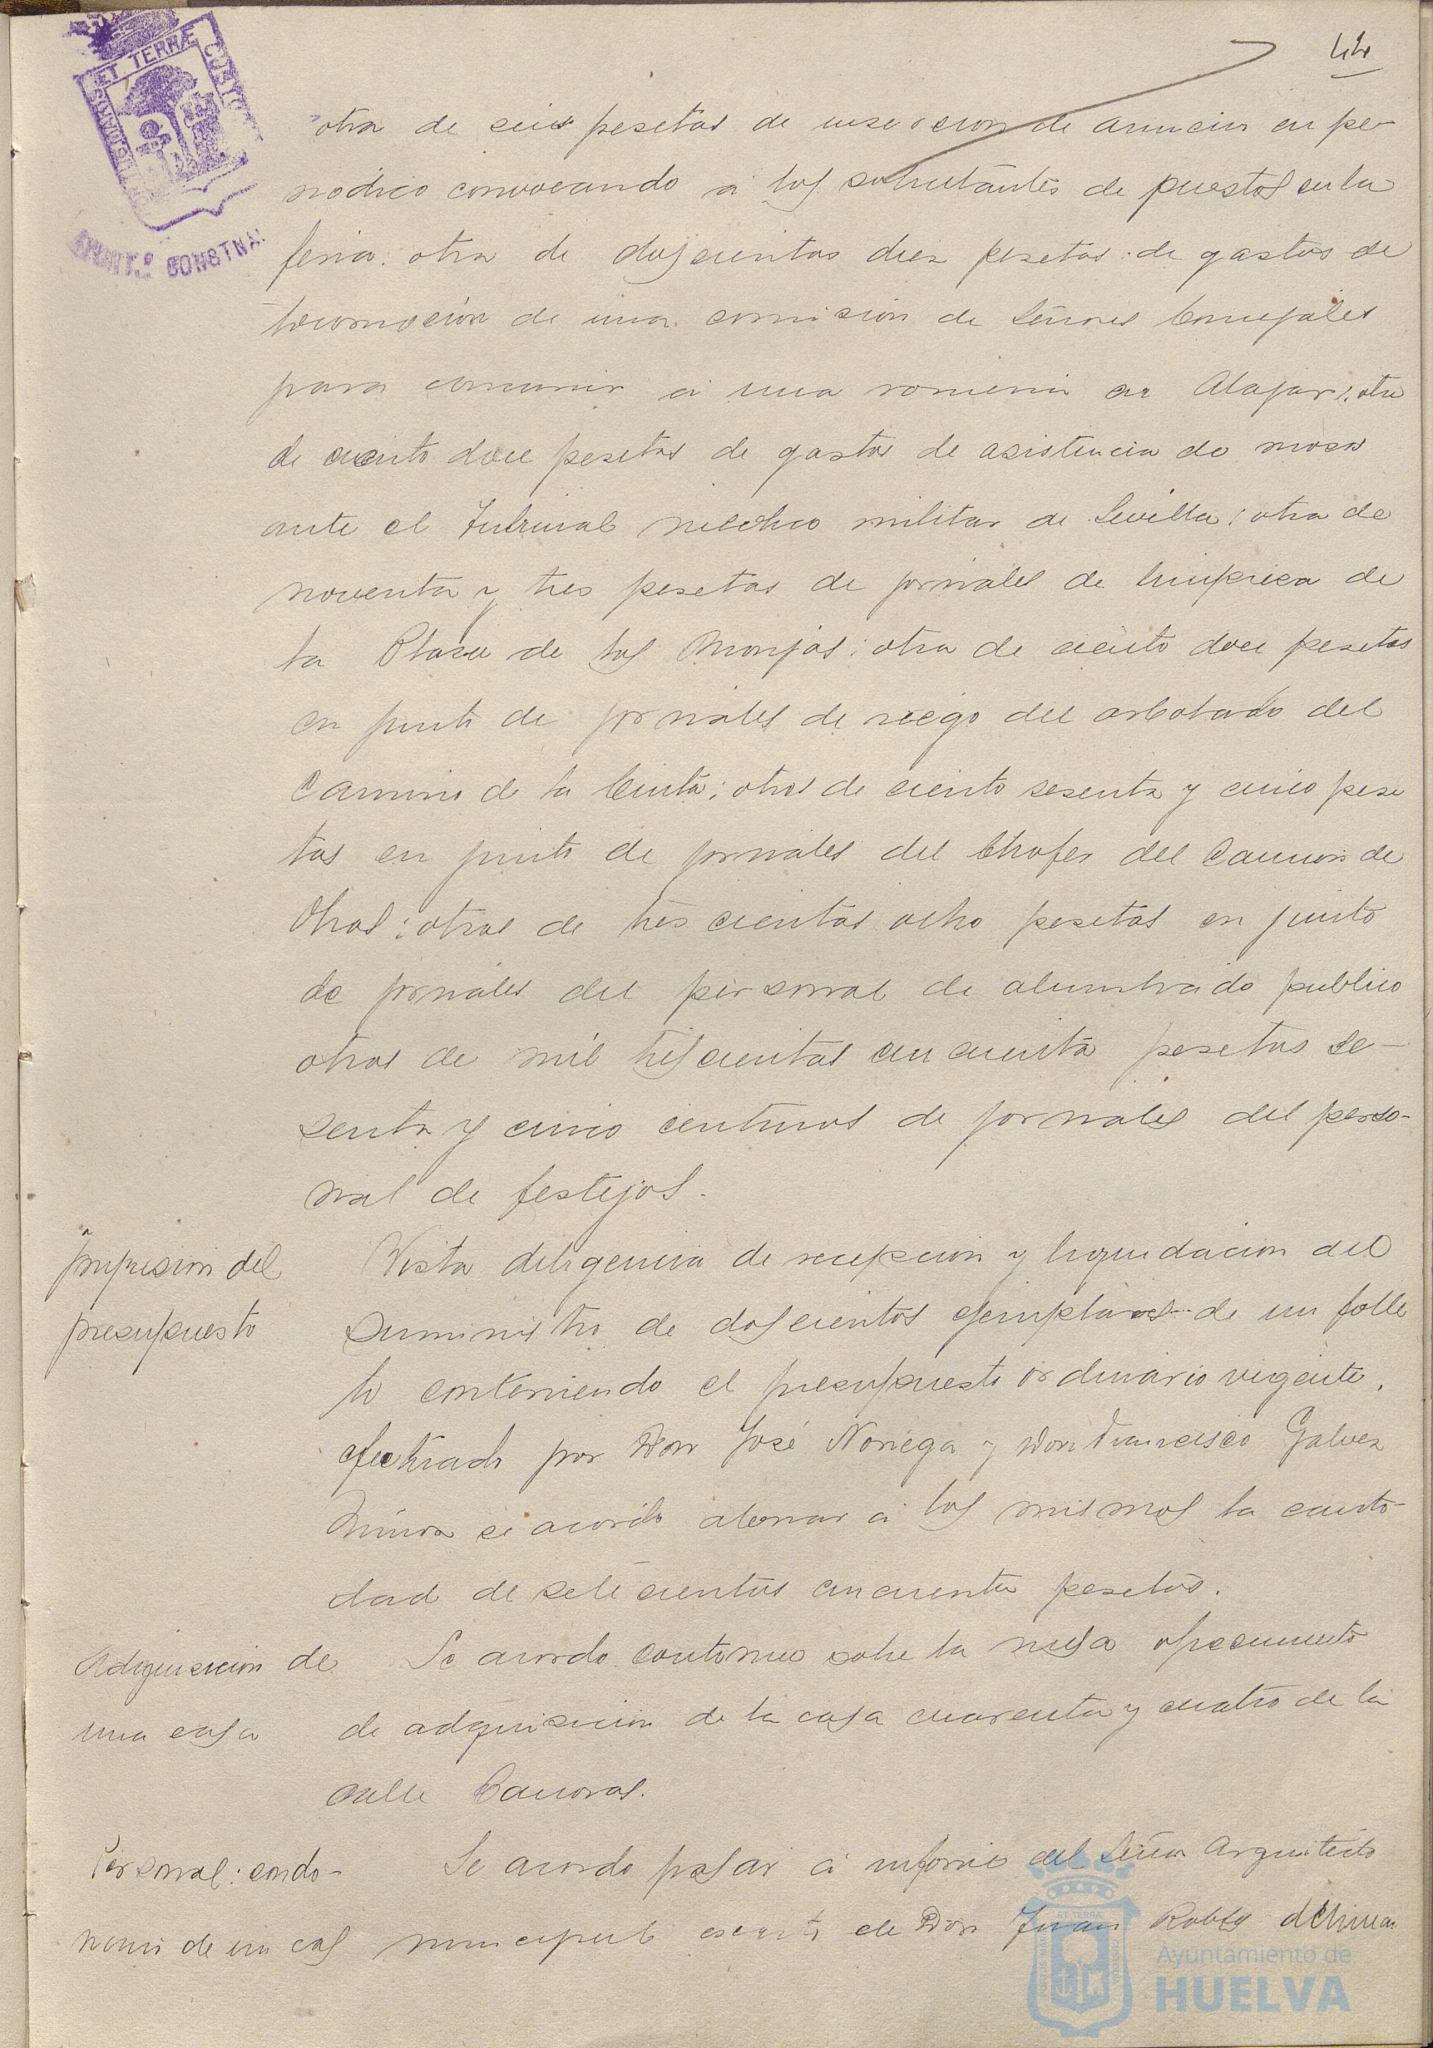 44
otra de seis pesetas de insercion de anuncio en pe-
riodico convocando a los solicitantes de puestos en la
feria: otra de doscientas diez pesetas de gastos de
locomoción de una comision de Señores Concejales
para concurrir a una romeria en Alajar; otra
de ciento doce pesetas de gastos de asistencia de mozos
ante el Tribunal medico militar de Sevilla; otra de
noventa y tres pesetas de jornales de limpieza de
la Plaza de las Monjas; otra de ciento doce pesetas
en junto de jornales de riego del arbolado del
Camino de la Cinta; otras de ciento sesenta y cinco pese
tas en junto de jornales del Chofer del Camion de
Obras; otras de trescientas ocho pesetas en junto
de jornales del personal de alumbrado publico
otras de mil trescientas cincuenta pesetas se-
senta y cinco centimos de jornales del perso-
nal de festejos.
Impresion del
presupuesto
Vista diligencia de recepcion y liquidacion del
suministro de doscientos ejemplares de un folle
to conteniendo el presupuesto ordinario vigente,
efectuado por Don José Noriega y Don Francisco Galvez
se acordó abonar a los mismos la canti-
dad de setecientas cincuenta pesetas.
Adquisicion de
una casa
Se acordo continue sobre la mesa
de adquisicion de la casa cuarenta y cuatro de la
calle Canovas.
Personal:
de un
Se acordo pasar a informe del Señor Arquitecto
municipal escrito de Don Juan Robles
ET TERRÆ CUSTODIA
AYUNT.º CONSTNAL
Ayuntamiento de
HUELVA